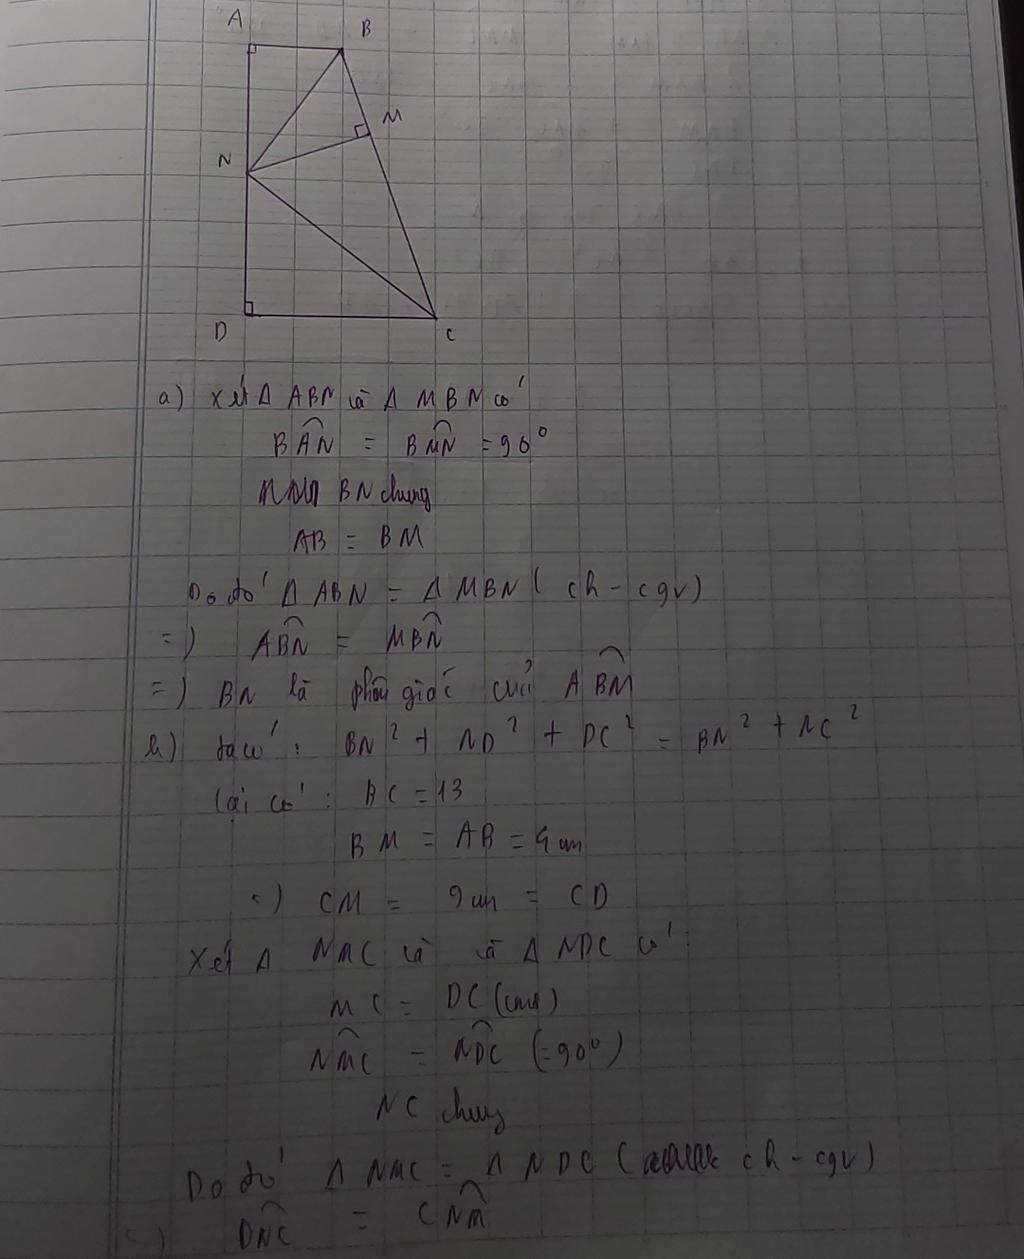 A B
M
N
D C
a) Xét Δ ABN và Δ MBN có
BAN = BMN = 90°
BN chung
AB = BM
Do đó Δ ABN = Δ MBN ( ch - cgv)
=) ABN = MBN
=) BN là phân giác của ABM
b) Ta có : BN² + ND² + DC² = BN² + NC²
Lại có : BC = 13
BM = AB = 4 cm
=) CM = 9 cm = CD
Xét Δ NMC và và Δ NDC có
MC = DC (cmt)
NMC = NDC (=90°)
NC chung
Do đó Δ NMC = Δ NDC ( ch - cgv)
=) DNC = CNM